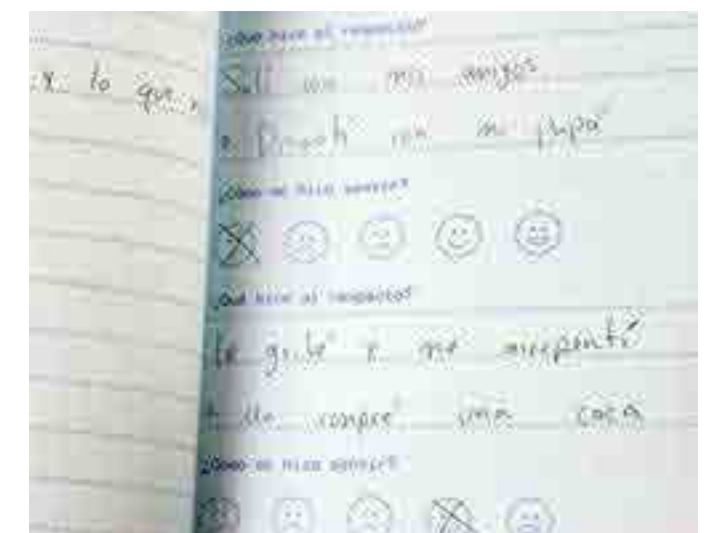 to que
¿Qué hice al respecto?
Salí con mis amigos
con mi papá
¿Cómo me hizo sentir?
¿Qué hice al respecto?
le grité y me arrepentí
le compré una coca
¿Cómo me hizo sentir?